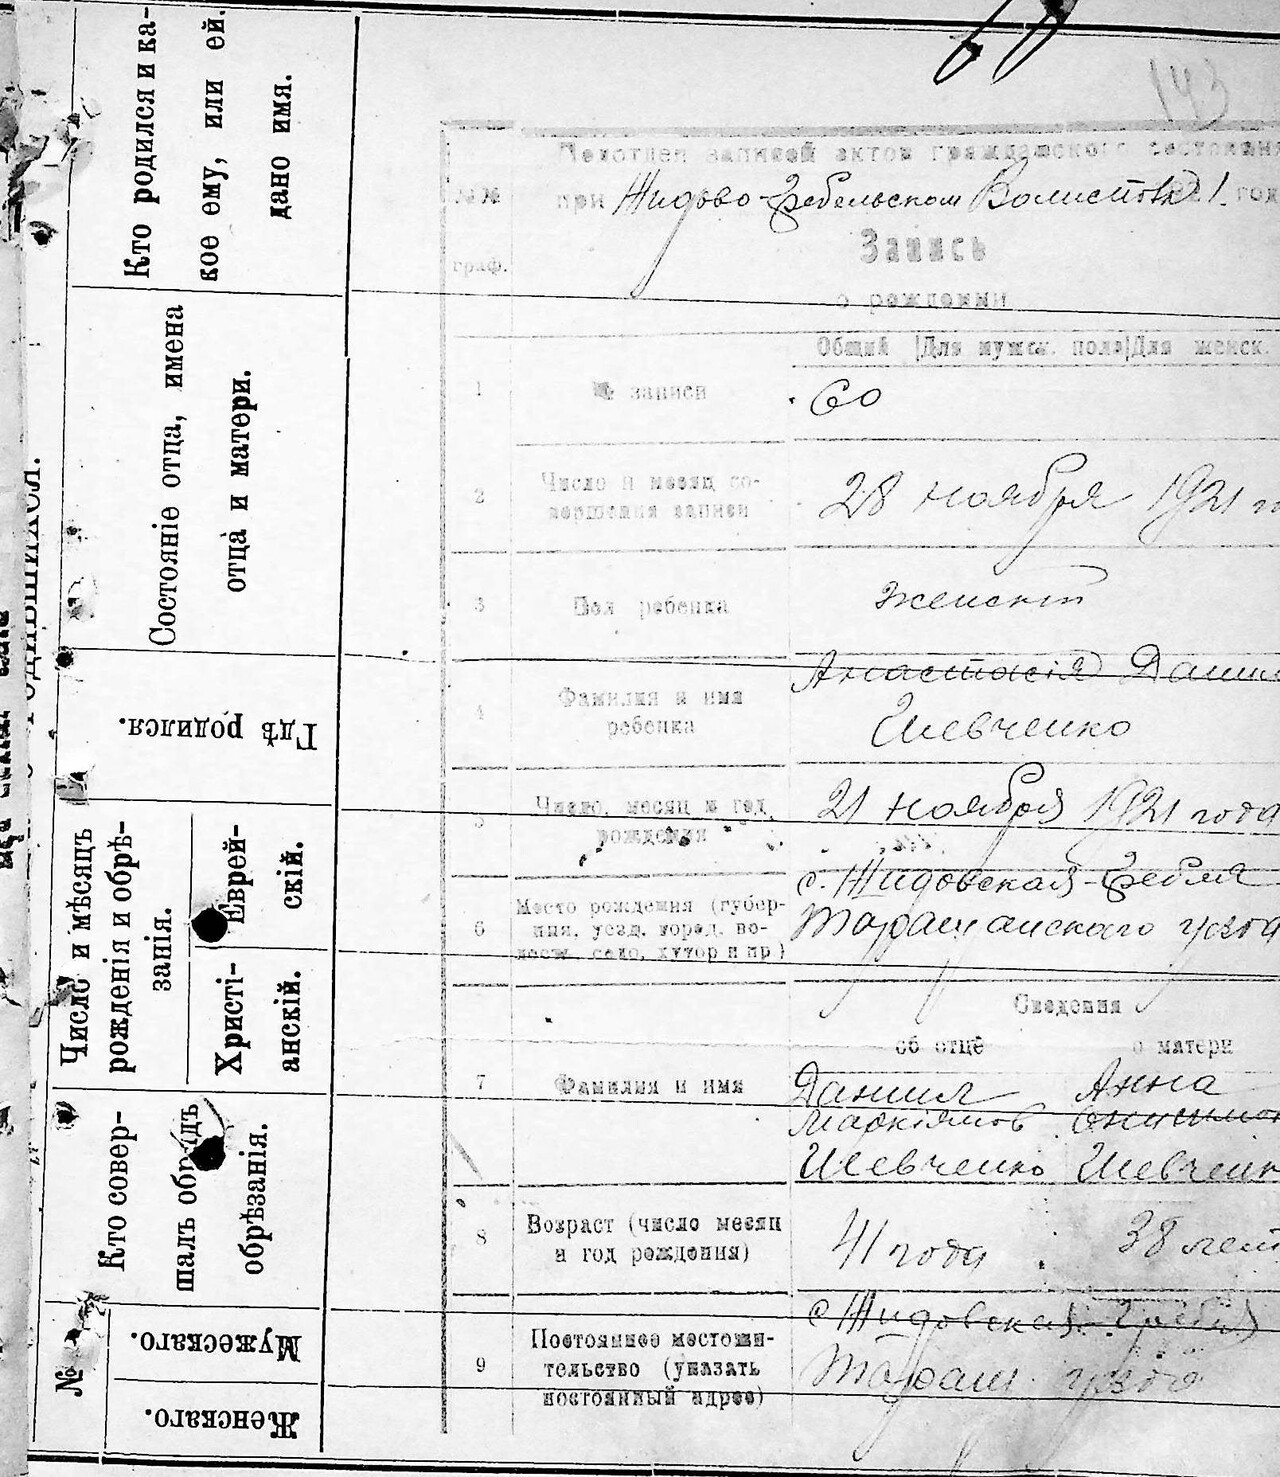 Кто родился и ка-
кое ему, или ей.
дано имя.
Состояніе отца, имена
отца и матери.
Гдѣ родился.
Число и мѣсяцъ
рожденія и обрѣ-
занія.
Еврей-
скій.
Христі-
анскій.
Кто совер-
шалъ обрядъ
обрѣзанія.
№
Мужескаго.
Женскаго.
143
Подотдел записей актов гражданского состояния
№№ при Жидово-Гребельском Волисполк 1921. год
граф.
Запись
о рождении
Общий Для мужск. пола Для женск.
1 № записи 60
2 Число и месяц со-
вершения записи 28 ноября 1921 г
3 Пол ребенка женский
4 Фамилия и имя
ребенка
Анастасія Данил
Шевченко
5 Число, месяц и год
рождения 21 ноября 1921 года
6 Место рождения (губер-
ния, уезд, город, во-
лость, село, хутор и пр)
с. Жидовская-Гребля
Таращанского уезда
Сведения
об отце о матери
7 Фамилия и имя Даниил Анна
Маркіянов Онисимов
Шевченко Шевченк
8 Возраст (число месяц
и год рождения) 41 года 38 лет
9 Постоянное местожи-
тельство (указать
постоянный адрес)
с Жидовская Гребля
Таращ. уезда